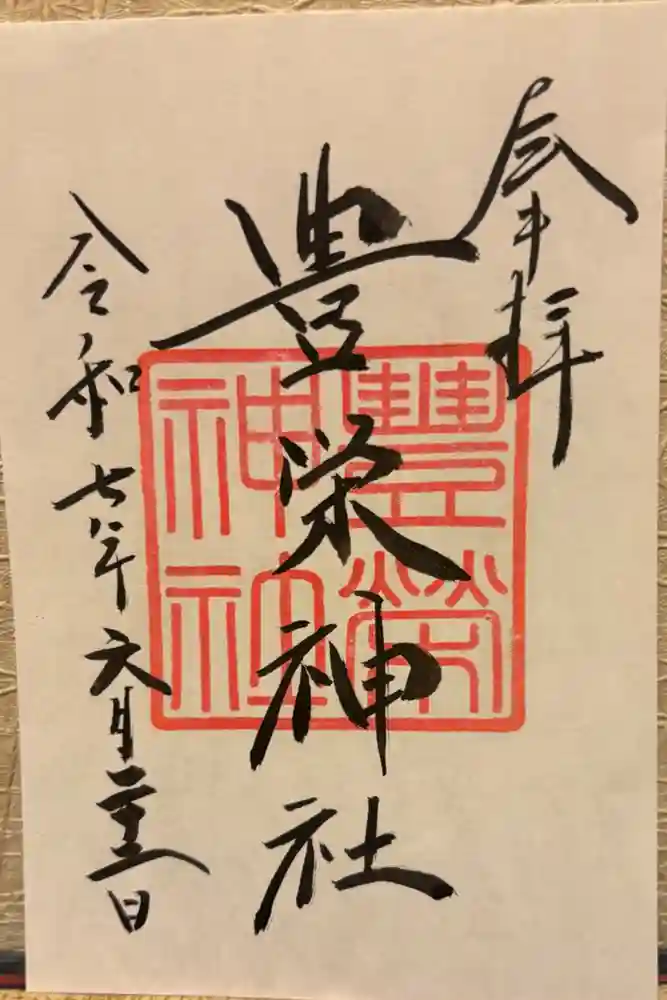 奉拝
豊栄神社
豐榮
神社
令和七年六月二十三日